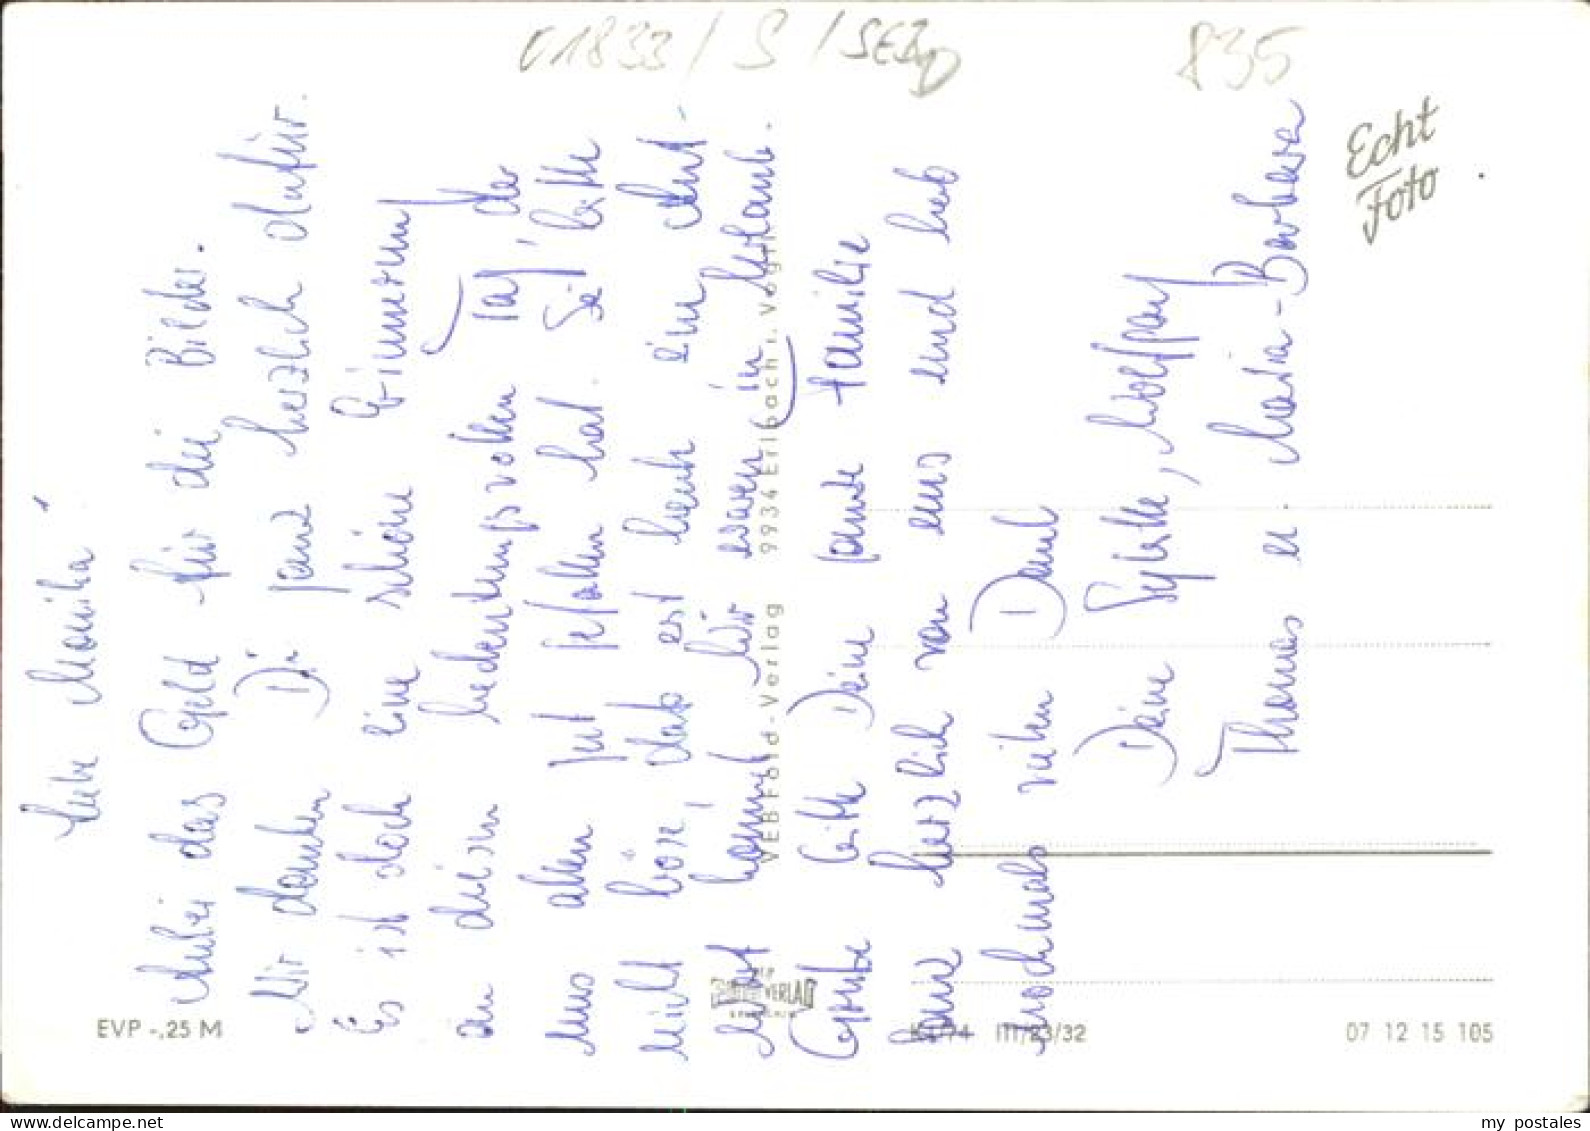 01833/S/SEB
835
Echt
Foto
Liebe Monika!
Anbei das Geld für die Bilder.
Wir danken Dir ganz herzlich dafür.
Es ist doch eine schöne Erinnerung
an diesen bedeutungsvollen Tag, der
uns allen gut gefallen hat. Sei bitte
nicht böse, daß erst heute eine Ant-
wort kommt. Wir waren in Urlaub.
Grüße bitte Deine ganze Familie
herzlich von uns und hab
nochmals vielen Dank
Deine Sybille, Wolfgang
Thomas u. Maria-Barbara
VEB Foto-Verlag 9934 Erlbach i. Vogtl.
VERLAG
EVP -,25 M
K1/74 III/23/32
07 12 15 105
my postales